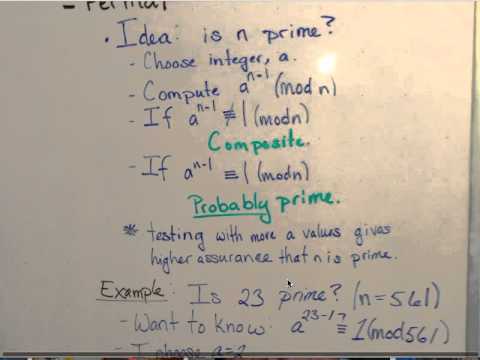 - Fermat
• Idea: is n prime?
- Choose integer, a.
- Compute a^{n-1} (mod n)
- If a^{n-1} ≢ 1 (mod n)
Composite.
- If a^{n-1} ≡ 1 (mod n)
Probably prime.
* testing with more a values gives
higher assurance that n is prime.
Example: Is 23 prime? (n=561)
- Want to know: a^{23-1} ≟ 1 (mod 561)
- I choose a=2